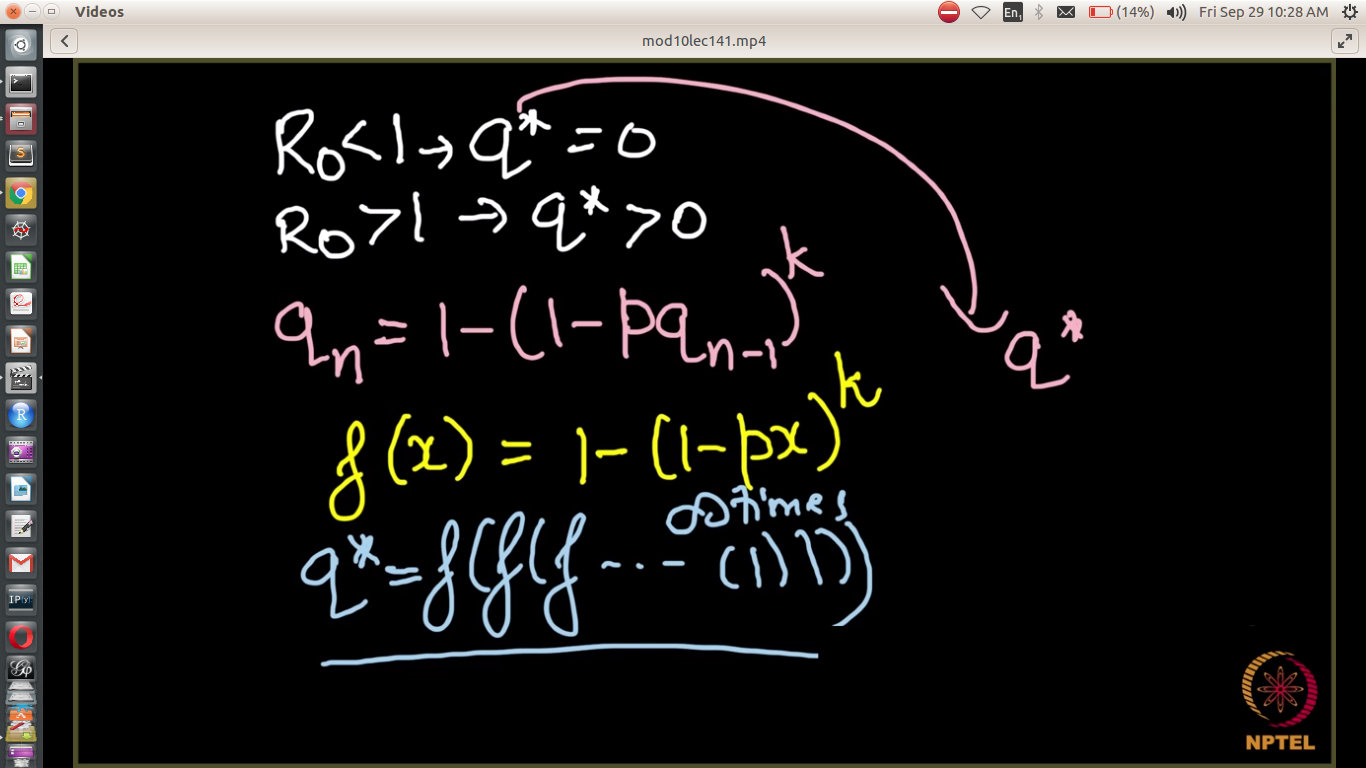 Videos
En₁
(14%)
Fri Sep 29 10:28 AM
mod10lec141.mp4
R₀<1→q*=0
R₀>1→q*>0
qₙ=1-(1-pqₙ₋₁)ᵏ
q*
f(x)=1-(1-px)ᵏ
∞times
q*=f(f(f---(1))))
NPTEL
IP[y]: